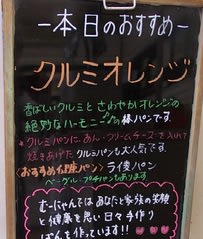 ー本日のおすすめー
クルミオレンジ
香ばしいクルミと さわやかオレンジの
絶妙なハーモニー♪の 棒パンです。
クルミパンに、あん・クリームチーズを入れて
焼きあげた クルミパンも大人気です。
〈おすすめパン〉 ライ麦パン
ベーグル・プチパンもあります
むーにゃんでは あなたと家族の笑顔
と健康を思い 日々手作り
ぱんを作っています!!